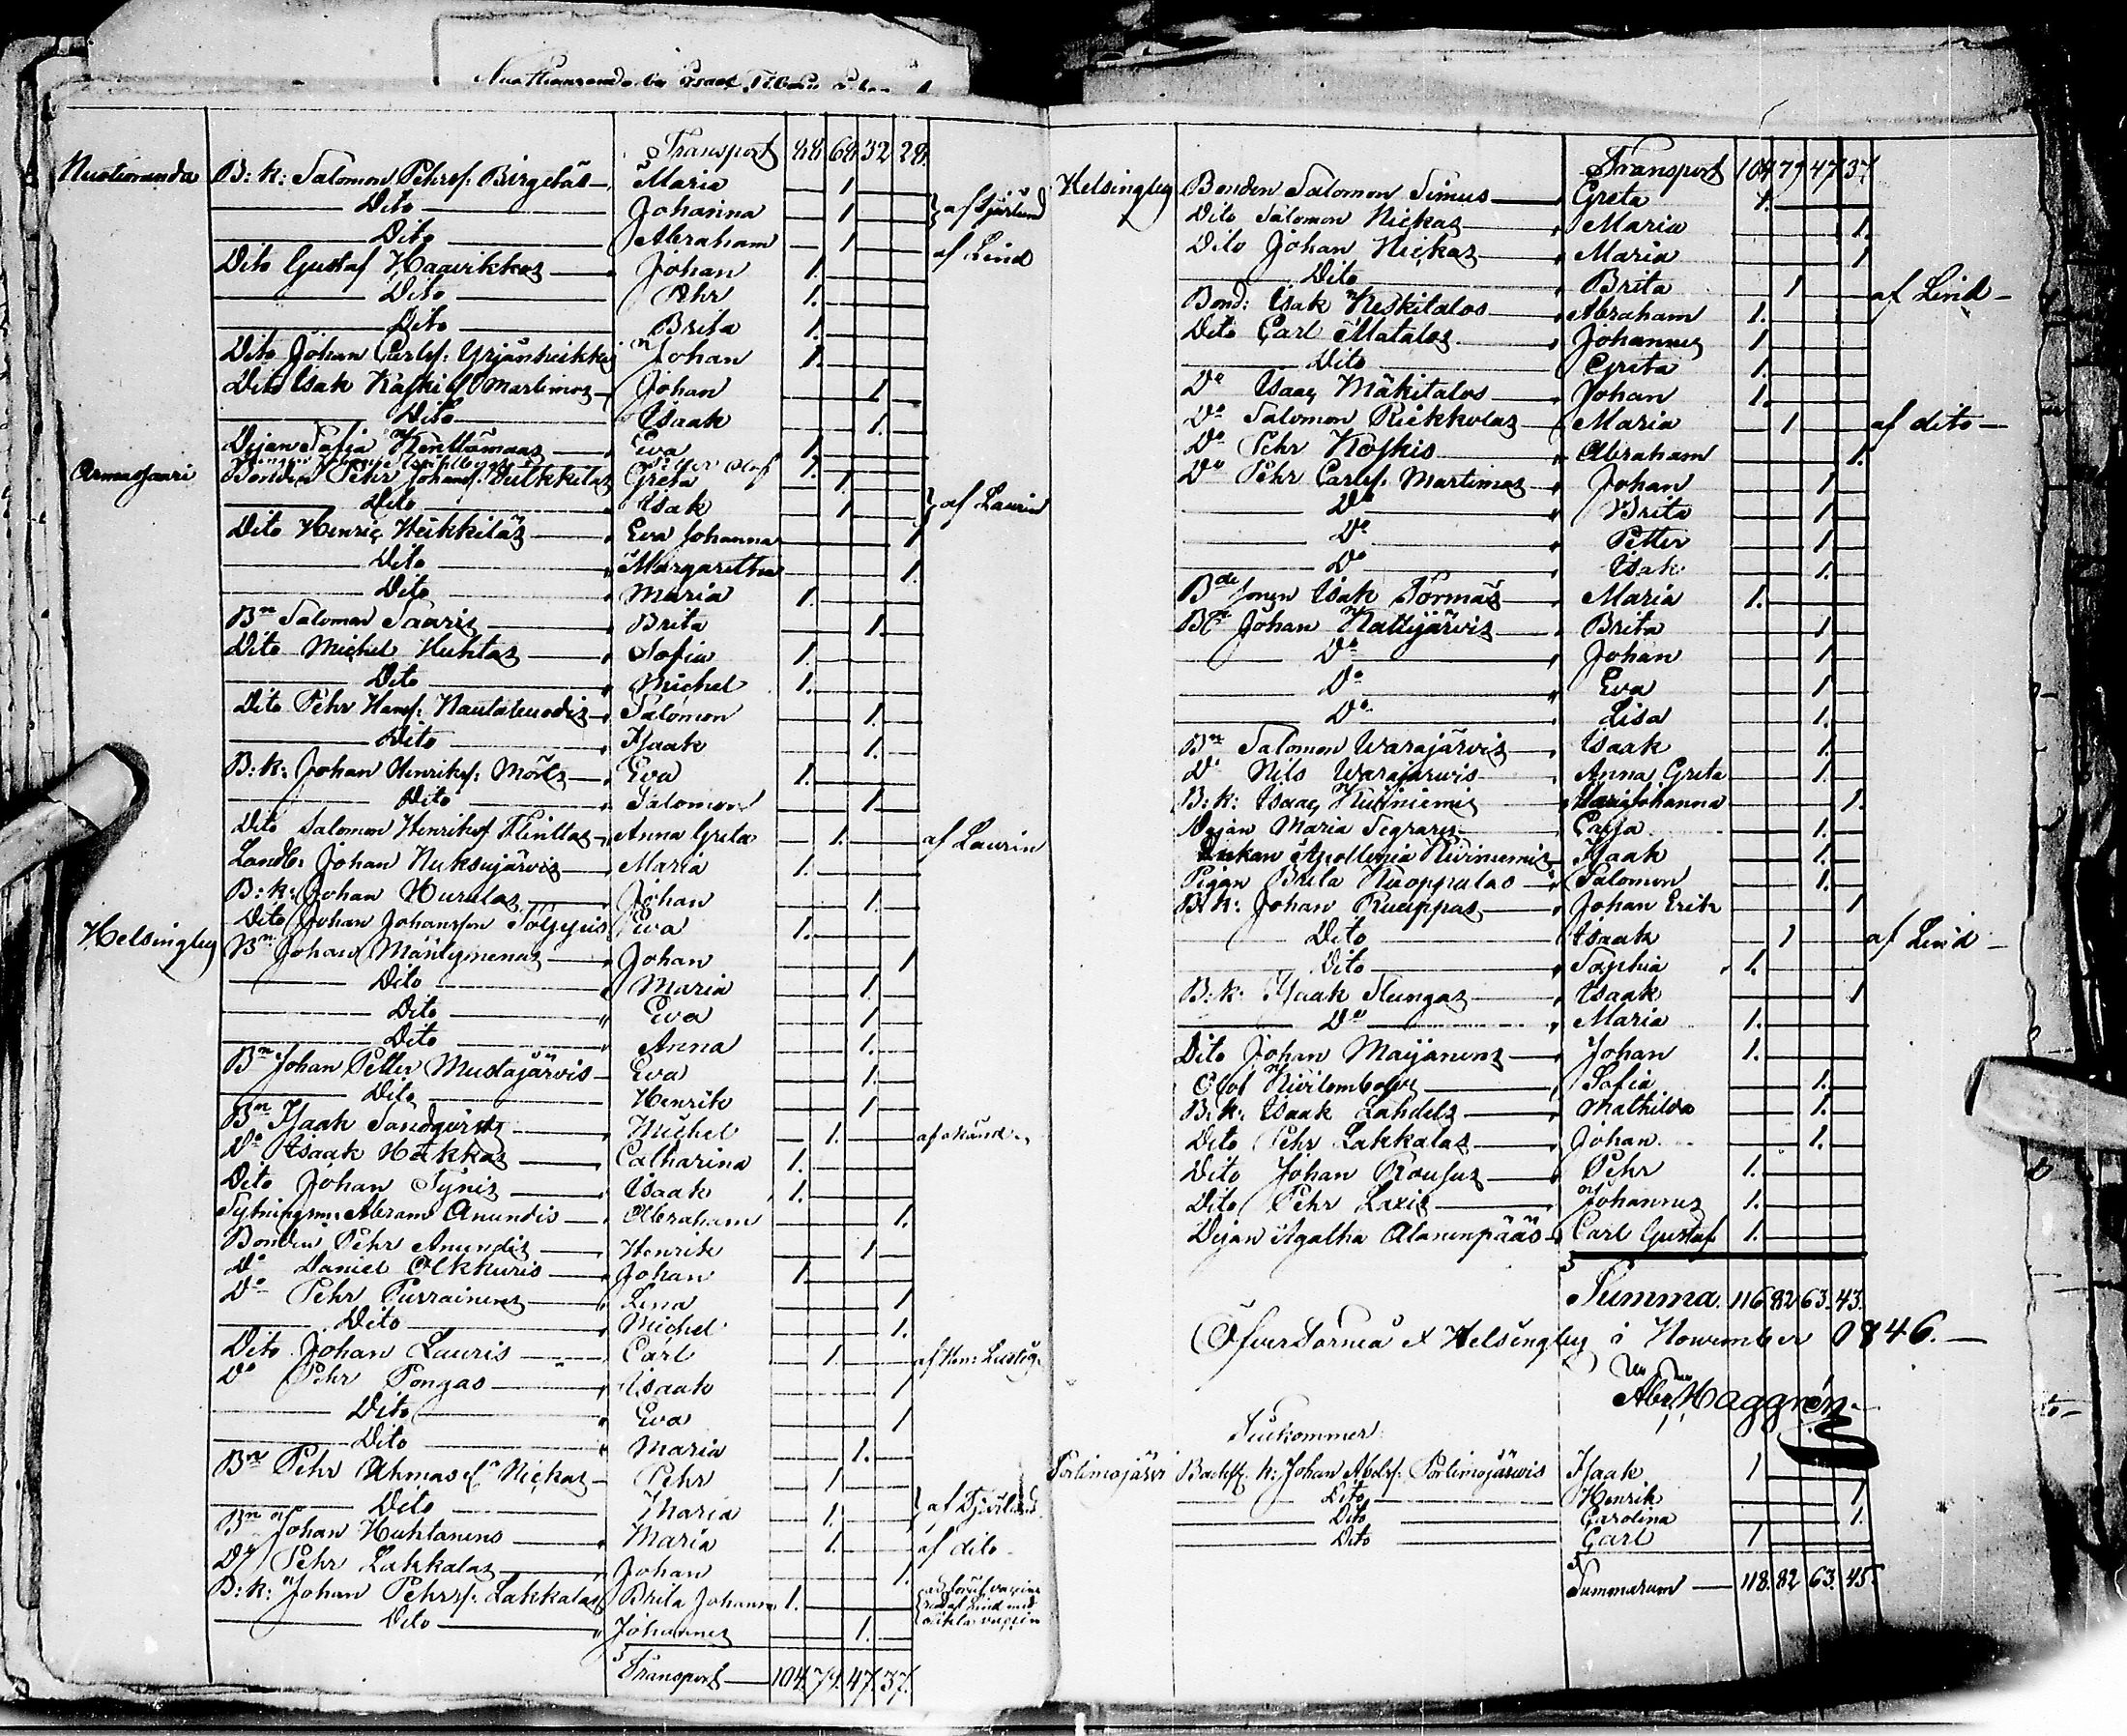 Transport 88. 68. 32 28.
Nuotioranda B: k: Salomon Pehrsf: Birgetas Maria 1
Dito Johanna 1 } af Djurlund
Dito Abraham 1 af Lind
Dito Gustaf Haavikkos Johan 1.
Dito Pehr 1.
Dito Brita 1.
Dito Johan Carlsf: Yrjänheikki Johan 1.
Dito Isak Kaski l. Martimos Johan 1
Dito Isaak 1.
Dejan Sofia Kenttämaas Eva 1
Petter Olof 1.
Armassaari Bonden Pehr Johansf: Greta 1.
Dito Isak 1. } af Laurin
Dito Henric Heikkiläs Eva Johanna 1
Dito Margaretha 1.
Dito Maria 1.
Bn Salomon Saaris Brita 1.
Dito Michel Huhtas Sofia 1.
Dito Michel 1.
Dito Pehr Hansf: Salomon 1.
Dito Isaak 1.
B: k: Johan Henriksf: Eva 1.
Dito Salomon 1.
Dito Salomon Henriksf Anna Greta 1. af Laurin
Landb: Johan Nuksujärvis Maria 1.
B: k: Johan Hurulas Johan 1.
Dito Johan Johansson Eva 1.
Helsingby Bn Johan Mäntymenas Johan 1
Dito Maria 1.
Dito Eva 1.
Dito Anna 1.
Bn Johan Petter Mustajärvis Eva 1.
Dito Henrik 1
Bn Isaak Sandqvists Michel 1.
Do Isaak Hökkas Catharina 1.
Dito Johan Isaak 1.
Sytningsm: Abram Anundis Abraham 1.
Bonden Pehr Anundis Henrik 1
Do Daniel Olkkuris Johan 1.
Do Pehr Purrainens Lena 1
Dito Michel 1.
Dito Johan Lauris Carl 1.
Do Pehr Pongas Isaak 1
Dito Eva 1
Dito Maria 1.
Bn Pehr Ahmas l. Nickas Pehr 1
Dito Maria 1. } af Djurlund
Bn Johan Huhtanens Maria 1. af dito
Do Pehr Lakkalas Johan 1.
B: k: Johan Pehrsf: Lakkalas Brita Johanna 1.
Dito Johannes 1.
Transport 104. 79. 47. 37.
Transport 104 79 47 37.
Helsingby Bonden Salomon Simus Greta 1.
Dito Salomon Nickas Maria 1.
Dito Johan Nickas Maria 1
Dito Brita 1 af Lind
Bond: Isak Keskitalos Abraham 1.
Dito Carl Matalas Johannes 1
Dito Greta 1.
Do Isaac Mäkitalos Johan 1.
Do Salomon Riekkolas Maria 1 af dito
Do Pehr Koskis Abraham 1.
Do Pehr Carlsf: Martimos Johan 1
Do Brita 1
Do Petter 1
Do Isak 1.
Isak Törmäs Maria 1.
Johan Kattijärvis Brita 1
Do Johan 1
Do Eva 1
Do Lisa 1.
Bn Salomon Warajärvis Isaak 1.
Do Nils Warajärvis Anna Greta 1.
B: k: Isaac Kuiniemis Maria Johanna 1.
Dejan Maria Segrars Cajsa 1.
Enkan Apollonia Isaak 1.
Pigan Brita Kuoppalas Salomon 1.
B. k: Johan Ruuppas Johan Erik 1
Dito Isaak 1 af Lind
Dito Sophia 1.
B: k: Isaak Slungas Isaak 1
Do Maria 1.
Dito Johan Maijanens Johan 1.
Olof Sofia 1.
B: k: Isaak Lahdels Mathilda 1.
Dito Pehr Lakkalas Johan 1.
Dito Johan Roufus Pehr 1.
Dito Pehr Laxis Johannes 1.
Dejan Agatha Alanenpääs Carl Gustaf 1.
Summa. 116. 82 63. 43.
Öfver Torneå et Helsingby i November 1846.
Abr: Haggrén
Portimojärvi k: Johan Abrsf: Portimojärvis Isaak 1
Dito Henrik 1
Dito Carolina 1.
Dito Carl 1
Summarum 118. 82 63. 45.